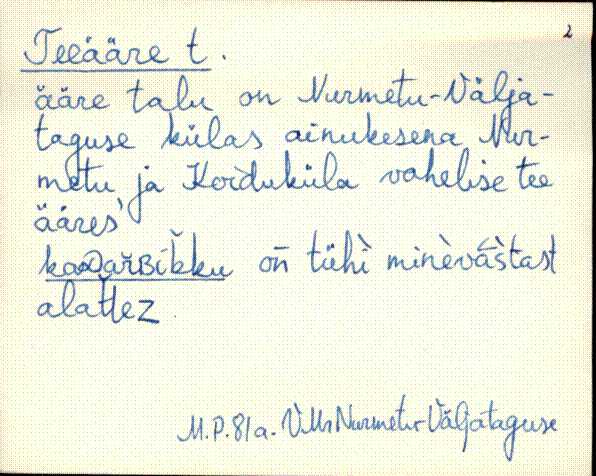 2
Teeääre t.
ääre talu on Nurmetu-Välja-
taguse külas ainukesena Nur-
metu ja Koiduküla vahelise tee
ääres
on̄ tühì minèvástast
alattez
M.P. 81a. VMr Nurmetu-Väljataguse